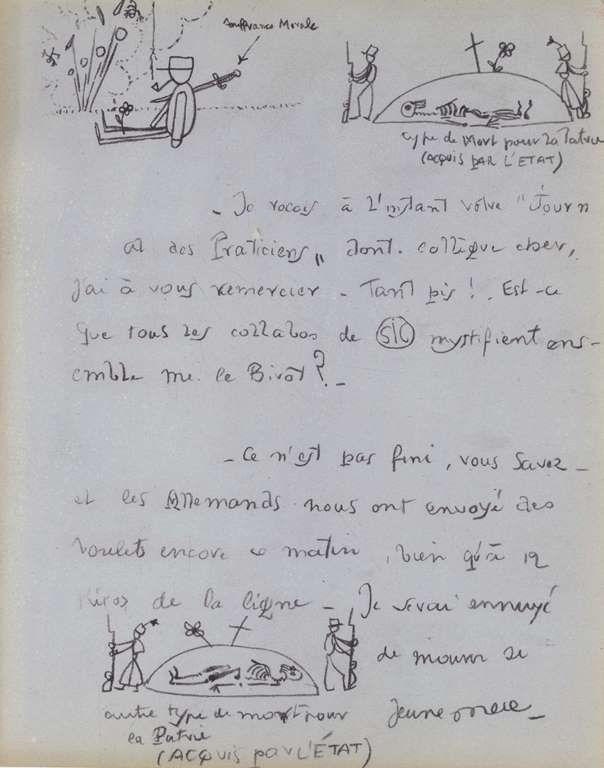 Souffrance Morale
type de Mort pour la Patrie
(ACQUIS PAR L'ETAT)
- Je reçois à L'instant votre "Journ
al des Praticiens" dont. collègue cher,
j'ai à vous remercier - Tant pis! . Est-ce
que tous les collabos de SIC mystifient ens-
emble me. le Birot? -
- Ce n'est pas fini, vous savez -
et les Allemands nous ont envoyé des
boulets encore ce matin, bien qu'à 12
Kiros de la ligne - Je serai ennuyé
de mourir si
Jeune
autre type de mort pour
la Patrie
(ACQUIS par L'ÉTAT)